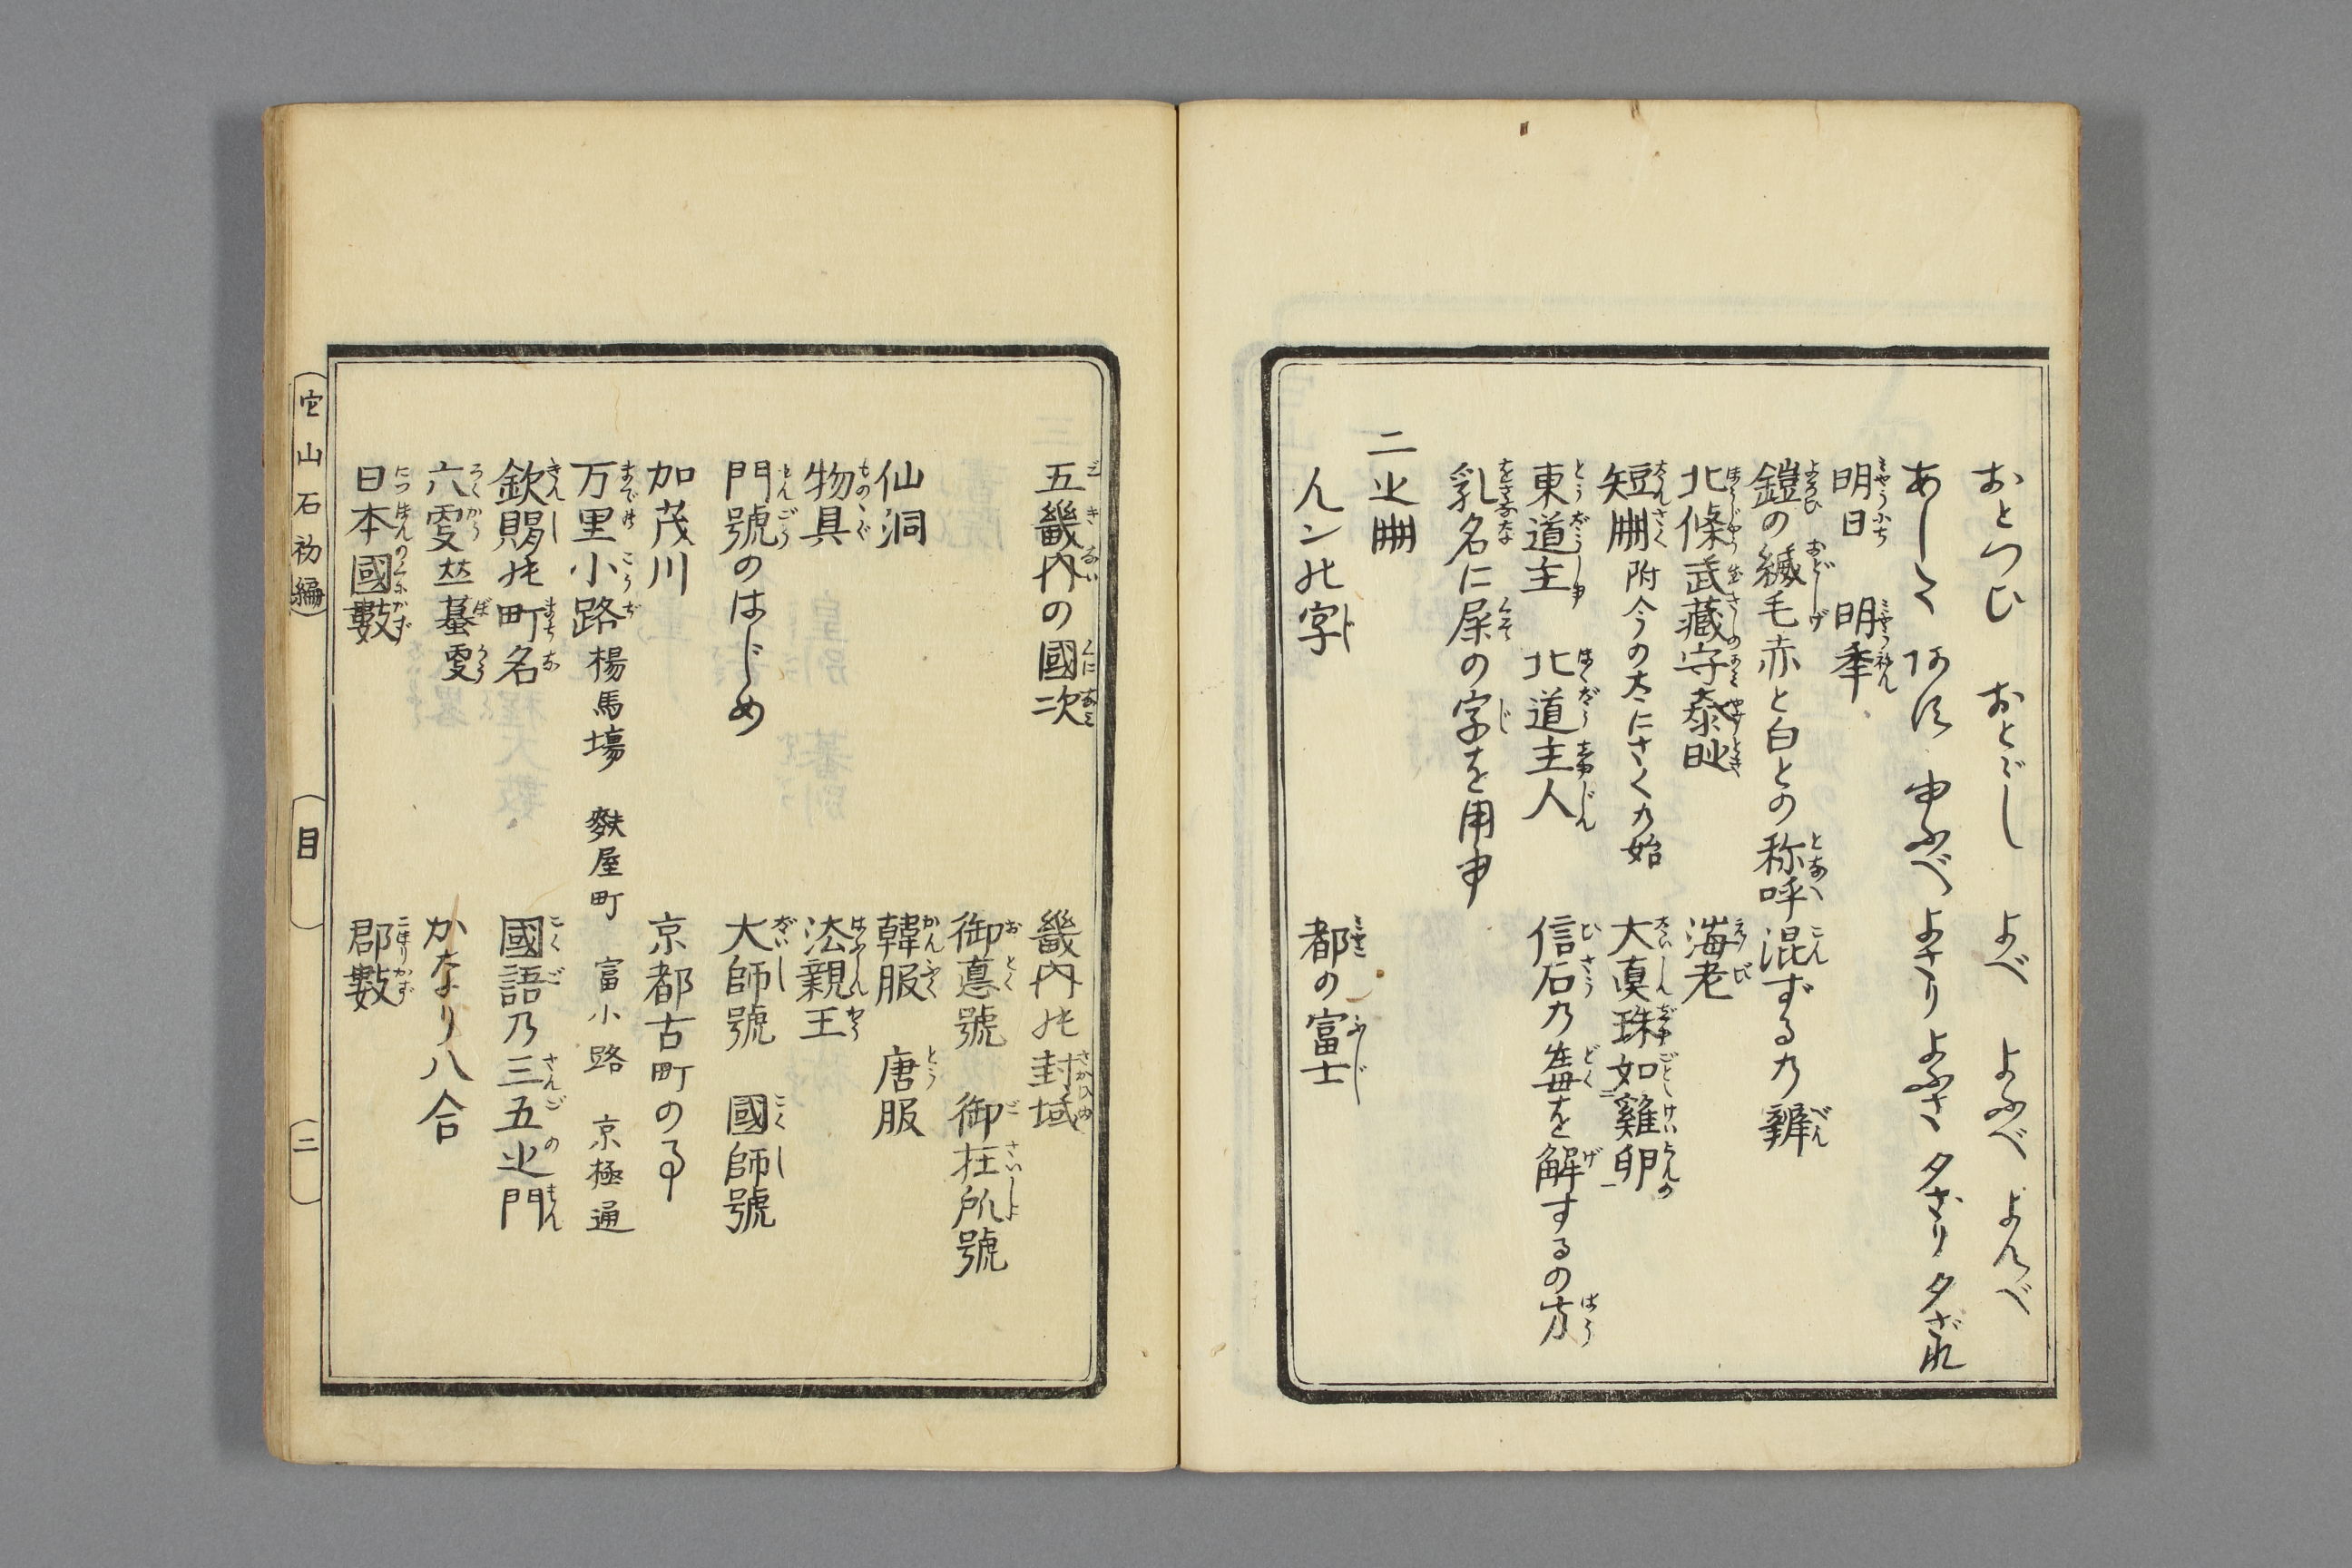 おとつひ　おとゞし　よべ　よふべ　よんべ
あした　あす　ゆふべ　よさり　よふさ　夕さり　夕ざれ
明日　明季
鎧の縅毛赤と白との称呼混ずる乃辨
北條武藏守泰時　海老
短冊附今の大にさく乃始　大真珠如雞卵
東道主　北道主人　信石乃毒を解するの方
乳名に屎の字を用事
二之冊
んンの字　都の富士
五畿内の國次　畿内の封域
御悳號　御在所號
仙洞　韓服　唐服
物具　法親王
門號のはじめ　大師號　國師號
加茂川　京都古町の事
万里小路　楊馬塲　麩屋町　富小路　京極通
欽賜の町名　國語乃三五之門
六　かなり八合
日本國數　郡數
它山石初編　目　二